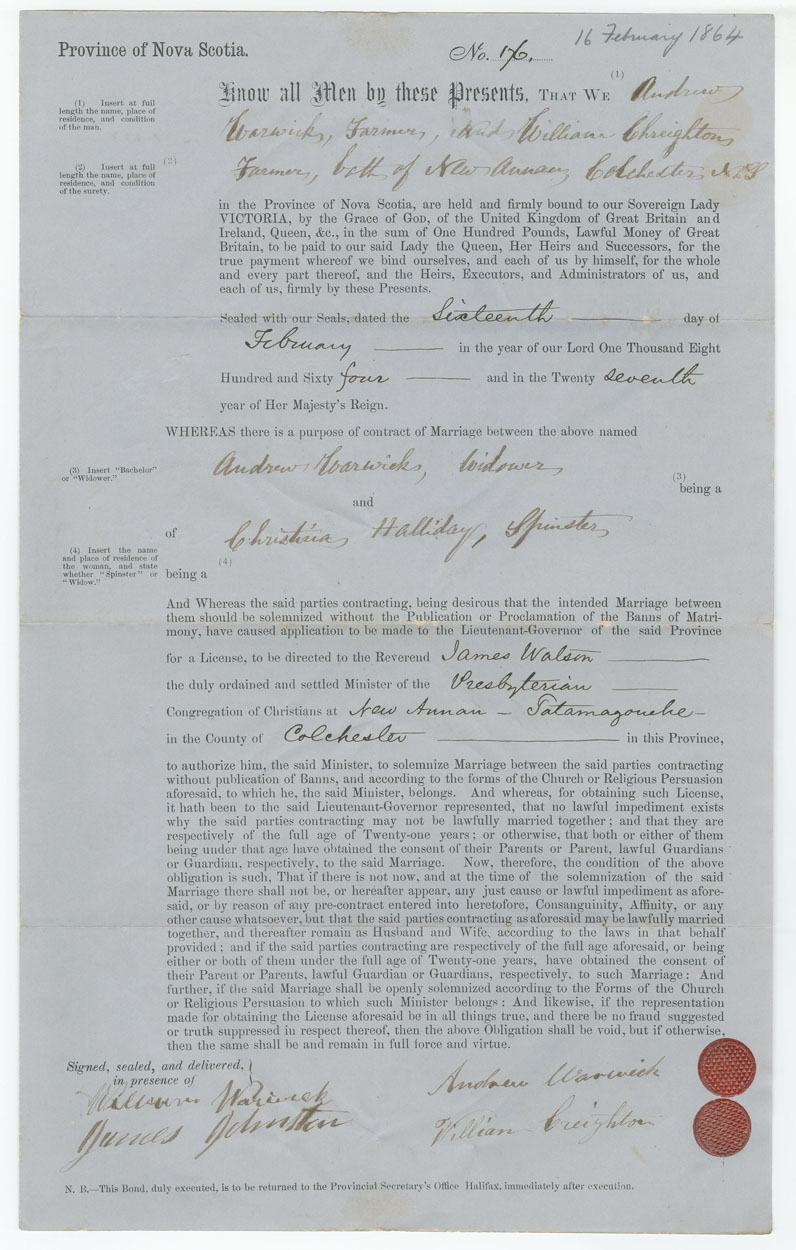 16 February 1864
Province of Nova Scotia.
No. 176.
(1) Insert at full
length the name, place of
residence, and condition
of the man.
Know all Men by these Presents, THAT WE (1) Andrew
Warwick, Farmer, and William Chreighton
(2) Insert at full
length the name, place of
residence, and condition
of the surety.
(2) Farmer, both of New Annan, Colchester, N.S
in the Province of Nova Scotia, are held and firmly bound to our Sovereign Lady
VICTORIA, by the Grace of GOD, of the United Kingdom of Great Britain and
Ireland, Queen, &c., in the sum of One Hundred Pounds, Lawful Money of Great
Britain, to be paid to our said Lady the Queen, Her Heirs and Successors, for the
true payment whereof we bind ourselves, and each of us by himself, for the whole
and every part thereof, and the Heirs, Executors, and Administrators of us, and
each of us, firmly by these Presents.
Sealed with our Seals, dated the Sixteenth day of
February in the year of our Lord One Thousand Eight
Hundred and Sixty four and in the Twenty seventh
year of Her Majesty's Reign.
WHEREAS there is a purpose of contract of Marriage between the above named
(3) Insert "Bachelor"
or "Widower."
Andrew Warwick, Widower
(3)
being a
and
of Christina Halliday, Spinster
(4) Insert the name
and place of residence of
the woman, and state
whether "Spinster" or
"Widow."
(4)
being a
And Whereas the said parties contracting, being desirous that the intended Marriage between
them should be solemnized without the Publication or Proclamation of the Banns of Matri-
mony, have caused application to be made to the Lieutenant-Governor of the said Province
for a License, to be directed to the Reverend James Watson
the duly ordained and settled Minister of the Presbyterian
Congregation of Christians at New Annan - Tatamagouche -
in the County of Colchester in this Province,
to authorize him, the said Minister, to solemnize Marriage between the said parties contracting
without publication of Banns, and according to the forms of the Church or Religious Persuasion
aforesaid, to which he, the said Minister, belongs. And whereas, for obtaining such License,
it hath been to the said Lieutenant-Governor represented, that no lawful impediment exists
why the said parties contracting may not be lawfully married together; and that they are
respectively of the full age of Twenty-one years; or otherwise, that both or either of them
being under that age have obtained the consent of their Parents or Parent, lawful Guardians
or Guardian, respectively, to the said Marriage. Now, therefore, the condition of the above
obligation is such, That if there is not now, and at the time of the solemnization of the said
Marriage there shall not be, or hereafter appear, any just cause or lawful impediment as afore-
said, or by reason of any pre-contract entered into heretofore, Consanguinity, Affinity, or any
other cause whatsoever, but that the said parties contracting as aforesaid may be lawfully married
together, and thereafter remain as Husband and Wife, according to the laws in that behalf
provided; and if the said parties contracting are respectively of the full age aforesaid, or being
either or both of them under the full age of Twenty-one years, have obtained the consent of
their Parent or Parents, lawful Guardian or Guardians, respectively, to such Marriage: And
further, if the said Marriage shall be openly solemnized according to the Forms of the Church
or Religious Persuasion to which such Minister belongs: And likewise, if the representation
made for obtaining the License aforesaid be in all things true, and there be no fraud suggested
or truth suppressed in respect thereof, then the above Obligation shall be void, but if otherwise,
then the same shall be and remain in full force and virtue.
Signed, sealed, and delivered,
in presence of
William Warwick
James Johnston
Andrew Warwick
William Creighton
N. B.—This Bond, duly executed, is to be returned to the Provincial Secretary's Office Halifax, immediately after execution.